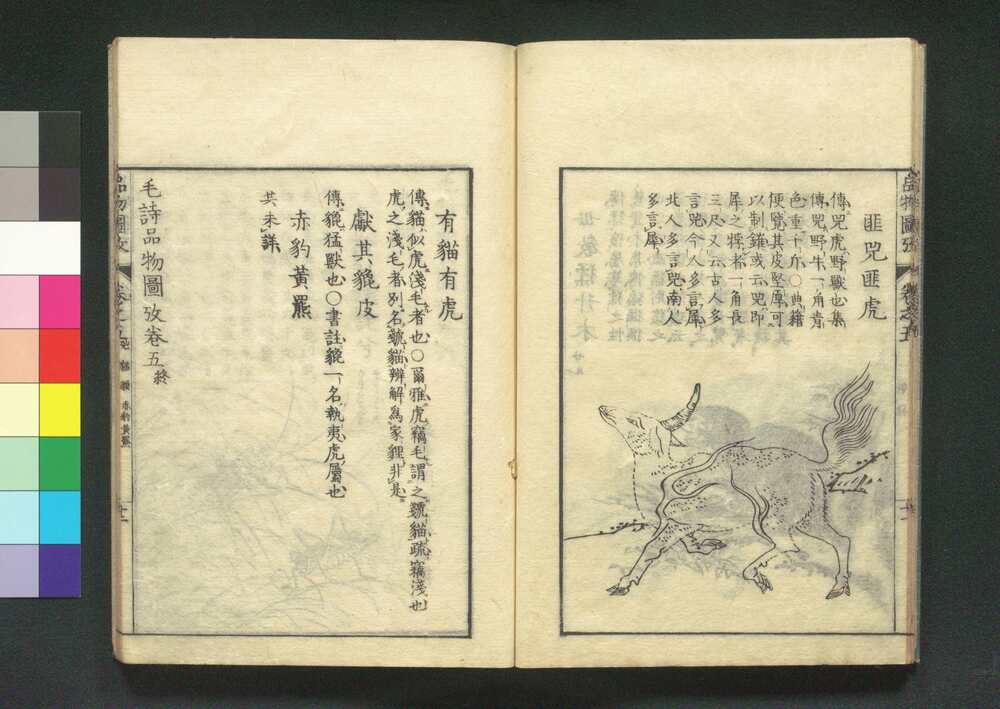 匪兕匪虎
傳兕虎野獸也集
傳兕野牛一角青
色重千斤〇典籍
便覽其皮堅厚可
以制鎧或云兕即
犀之牸者一角長
三尺又云古人多
言兕今人多言犀
北人多言兕南人
多言犀
品物圖攷
卷之五
有貓有虎
傳貓似虎淺毛者也〇爾雅虎竊毛謂之虦貓疏竊淺也
虎之淺毛者別名虦貓辨解為家貍非是
獻其貔皮
傳貔猛獸也〇書註貔一名執夷虎屬也
赤豹黃羆
其未詳
毛詩品物圖攷卷五終
品物圖攷
卷之五
貓
貔
赤豹黃羆
廿一